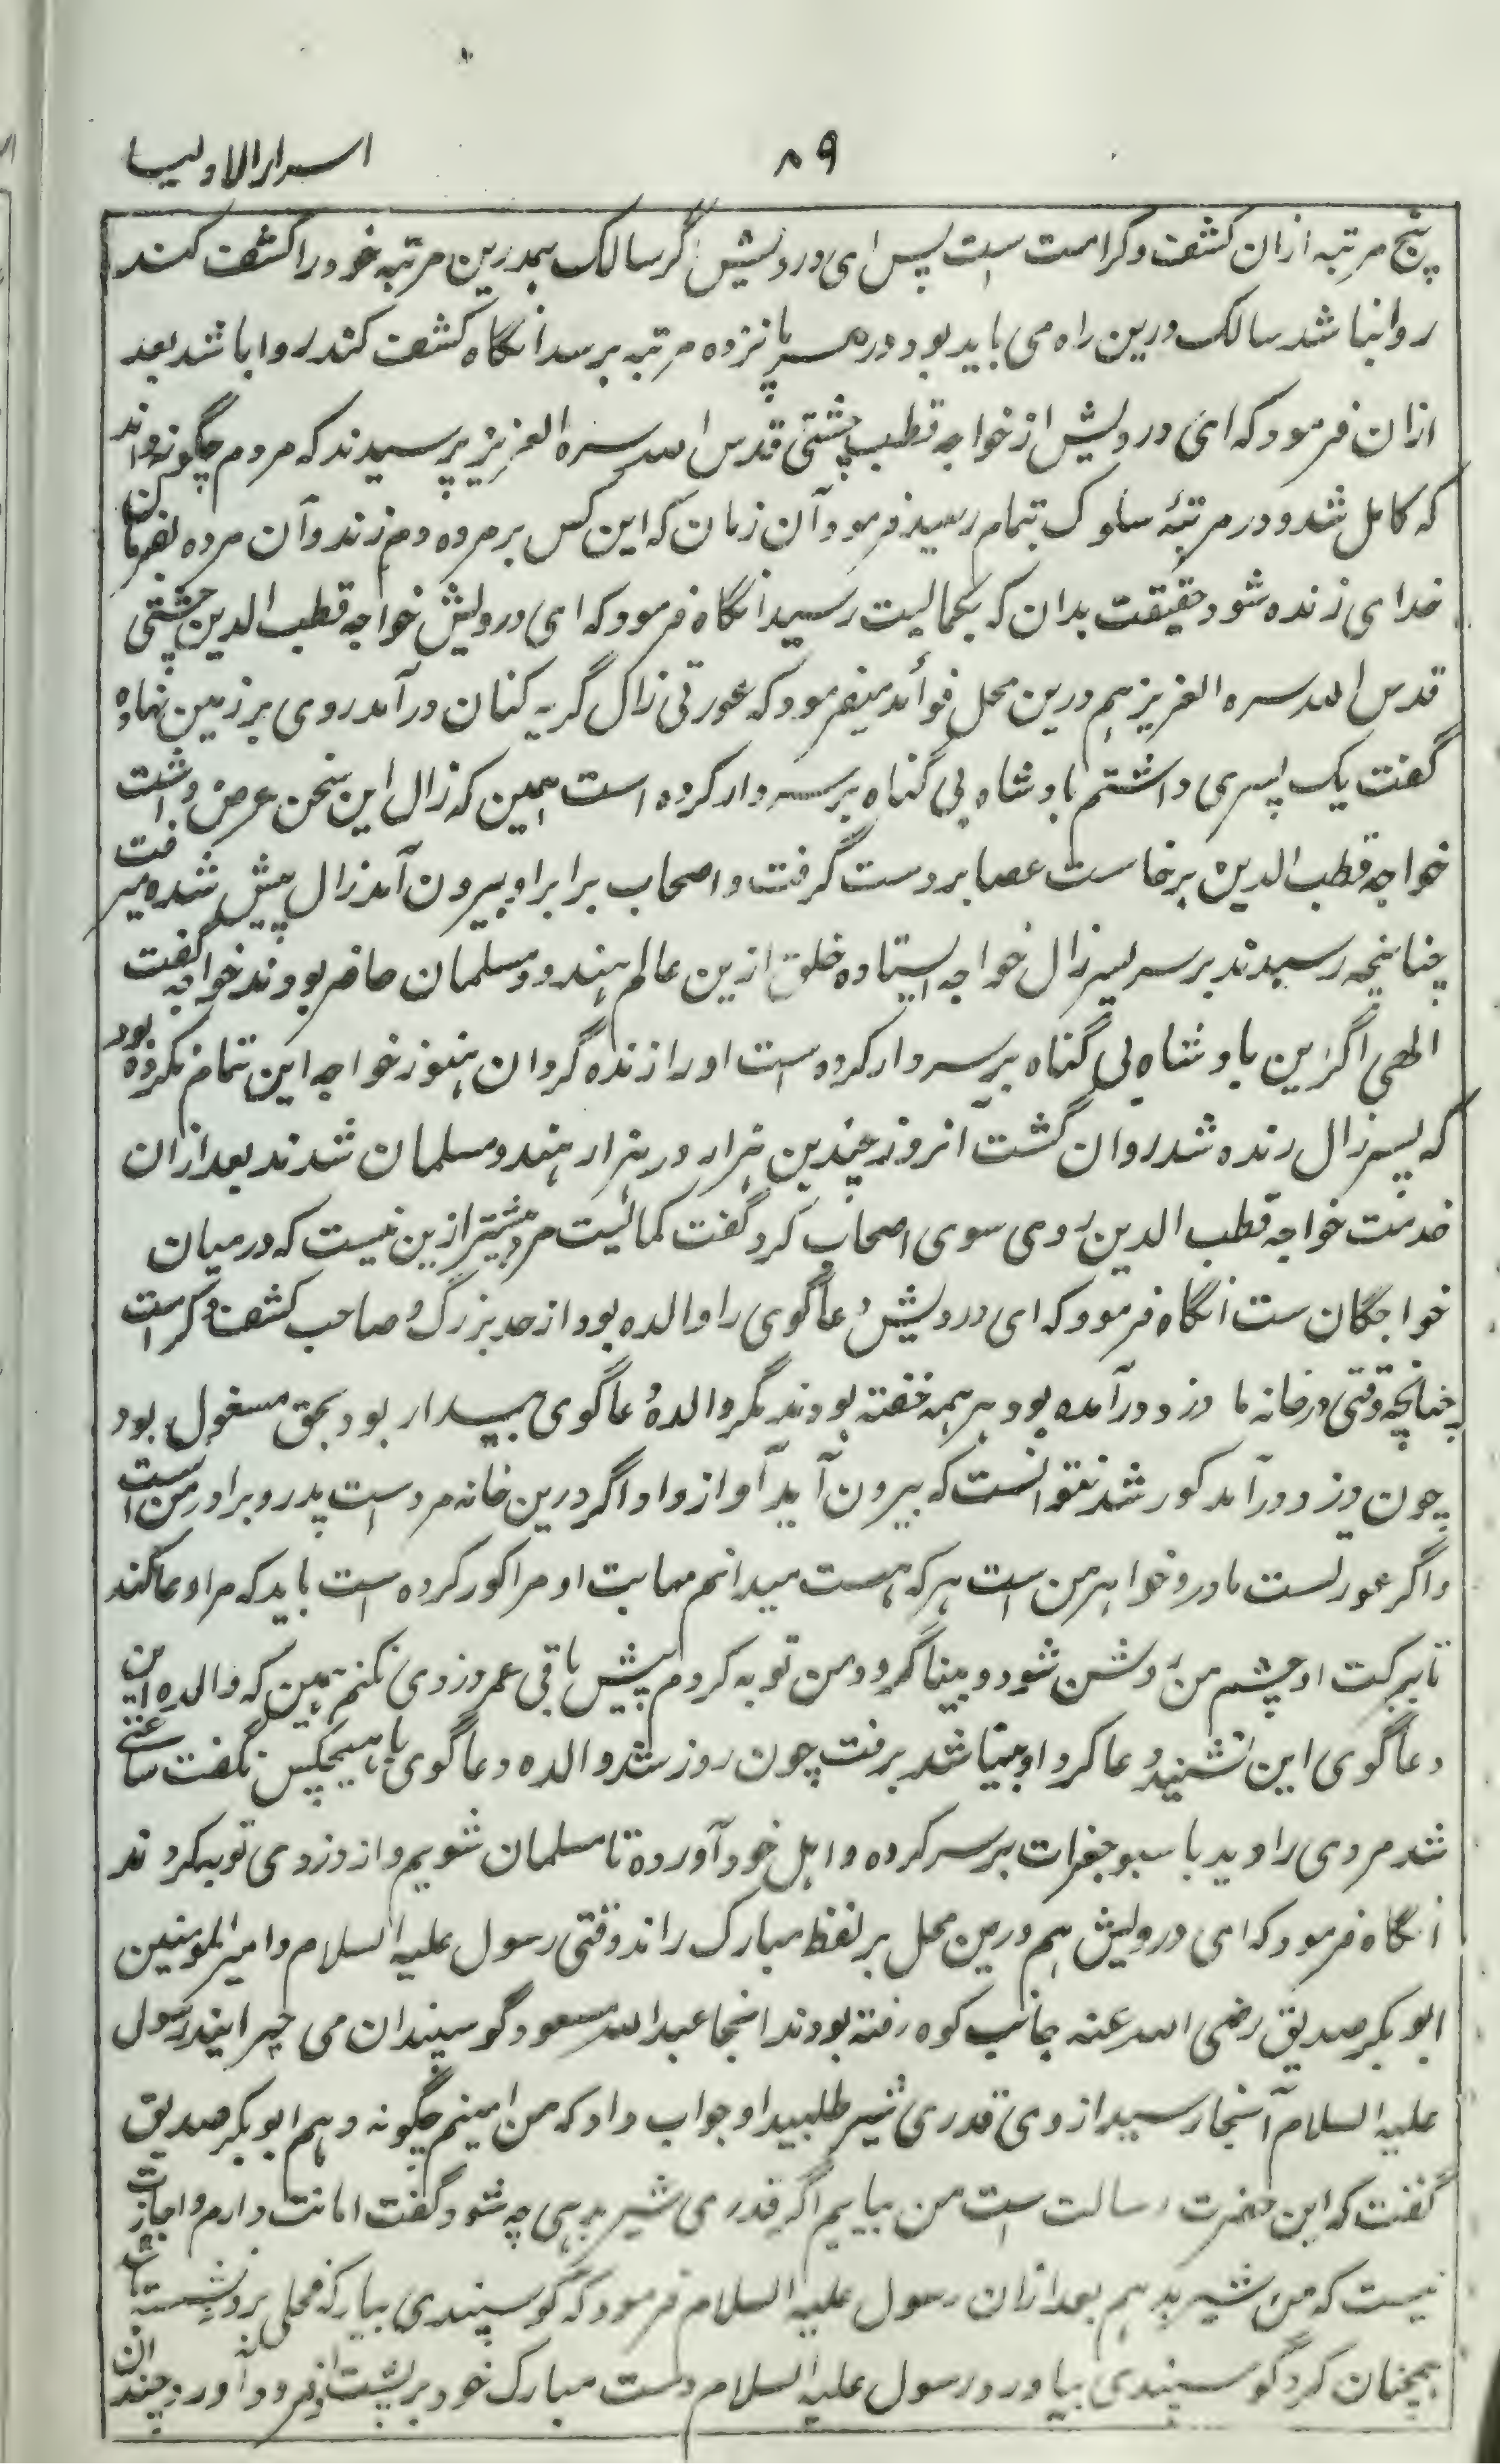 ۸۹
اسرارالاولیا
پنج مرتبہ ازان کشف و کرامت ست پس ای درویش اگر سالک ہمدرین مرتبہ خود را کشف کند
روا نباشد سالک درین راہ می باید بود در ہر پانزدہ مرتبہ برسد آنگاہ کشف کند روا باشد بعد
ازان فرمود کہ ای درویش از خواجہ قطب چشتی قدس اللہ سرہ العزیز پرسیدند کہ مردم چگونہ داند
کہ کامل شد و در مرتبۂ سلوک تمام رسید فرمود آن زمان کہ این کس بر مردہ دم زند و آن مردہ بفرمان
خدای زندہ شود حقیقت بدان کہ بکمالیت رسید انگاہ فرمود کہ ای درویش خواجہ قطب الدین چشتی
قدس اللہ سرہ العزیز ہم درین محل فوائد میفرمود کہ عورتی زال گریہ کنان درآمد روی بر زمین نہادہ
گفت یک پسری داشتم بادشاہ بی گناہ بر سر دار کردہ است ہمین کہ زال این سخن عرض داشت
خواجہ قطب الدین برخاست عصا بر دست گرفت و اصحاب برابر او بیرون آمد زال پیش شدہ میرفت
چنانچہ رسیدند بر سر پسر زال خواجہ ایستادہ خلق ازین عالم ہندو و مسلمان حاضر بودند خواجہ گفت
الٰہی اگر این بادشاہ بی گناہ بر سر دار کردہ ست او را زندہ گردان ہنوز خواجہ این تمام نکردہ بود
کہ پسر زال زندہ شد روان گشت آنروز چندین ہزار در ہزار ہندو مسلمان شدند بعد ازان
خدمت خواجہ قطب الدین روی سوی اصحاب کرد گفت کمالیت مرد بیشتر ازین نیست کہ درمیان
خواجگان ست انگاہ فرمود کہ ای درویش دعاگوی را والدہ بود از حد بزرگ و صاحب کشف و کرامت
چنانچہ وقتی در خانہ ما دزد درآمدہ بود ہر ہمہ خفتہ بودند مگر والدۂ دعاگوی بیدار بود بحق مشغول بود
چون دزد درآمد کور شد نتوانست کہ بیرون آید آواز داد اگر درین خانہ مرد است پدر و برادر من است
و اگر عورتست مادر و خواہر من است ہر کہ ہست میدانم مہابت او مرا کور کردہ است باید کہ مرا دعا کند
تا ببرکت او چشم من روشن شود و بینا گردد و من توبہ کردم پیش باقی عمر دزدی نکنم ہمین کہ والدہ این
دعاگوی این شنید دعا کرد او بینا شد برفت چون روز شد والدہ دعاگوی با ہیچکس نگفت ساعتی
شد مردی را دید با سبو جغرات بر سر کردہ و اہل خود آوردہ تا مسلمان شویم و از دزدی توبہ کردند
انگاہ فرمود کہ ای درویش ہم درین محل بر لفظ مبارک راند وقتی رسول علیہ السلام و امیرالمومنین
ابوبکر صدیق رضی اللہ عنہ بجانب کوہ رفتہ بودند انجا عبداللہ مسعود گوسپندان می چرانید رسول
علیہ السلام آنجا رسید از وی قدری شیر طلبید او جواب داد کہ من امینم چگونہ دہم ابوبکر صدیق
گفت کہ این حضرت رسالت ست من بیایم اگر قدری شیر بدہی چہ شود گفت امانت دارم و اجازت
نیست کہ من شیر بدہم بعد ازان رسول علیہ السلام فرمود کہ گوسپندی بیار کہ فحلی برو نشستہ باشد
ہمچنان کرد گوسپندی بیاورد رسول علیہ السلام دست مبارک خود بر پشت او فرود آورد چندان